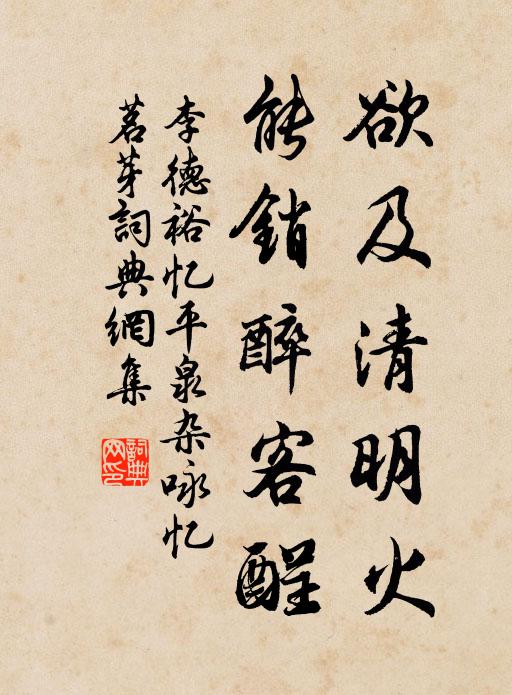 欲及清明火
能銷醉客酲
李德裕忆平泉杂咏忆
茗芽詞典網集
詞典
网印